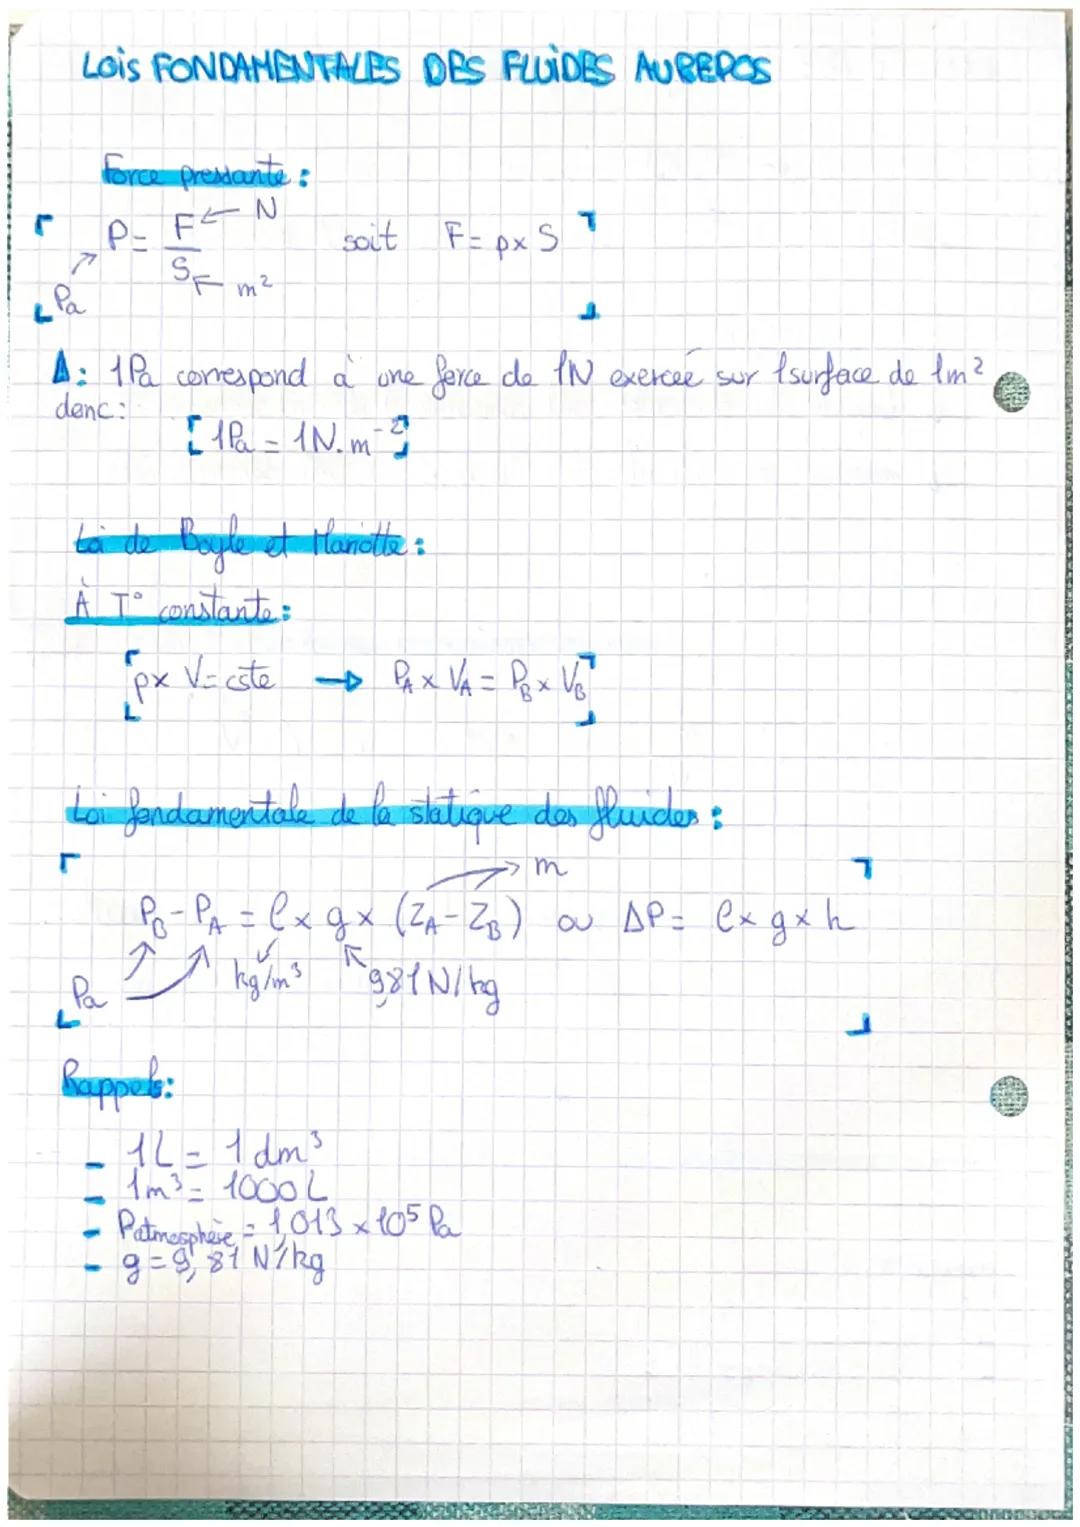 LOIS FONDAMENTALES DES FLUIDES AU REPOS
Force pressante :
P = F/S soit F = p x S
N
m²
Pa
⚠ : 1Pa correspond à une force de 1N exercée sur 1surface de 1m²
donc :
[1Pa = 1N.m⁻²]
Loi de Boyle et Mariotte :
À T° constante :
[p x V = cste → PA x VA = PB x VB]
Loi fondamentale de la statique des fluides :
m
PB - PA = ρ x g x (ZA - ZB) ou ΔP = ρ x g x h
Pa kg/m³ 9,81 N/kg
Rappels :
- 1L = 1 dm³
- 1m³ = 1000 L
- Patmosphère = 1,013 x 10⁵ Pa
- g = 9,81 N/kg